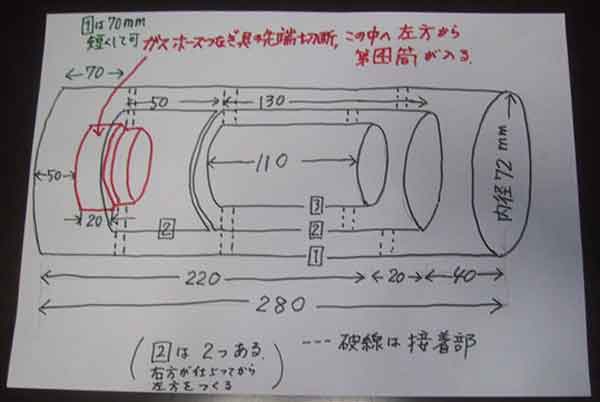 1は70mm
短くして可
ガスホースつなぎ具の先端切断,この中へ左方から
第4筒が入る.
70
50
130
110
50
20
3
2
2
1
内径72mm
220
20
40
280
(2は2つある.
右方が仕上ってから
左方をつくる)
---破線は接着部